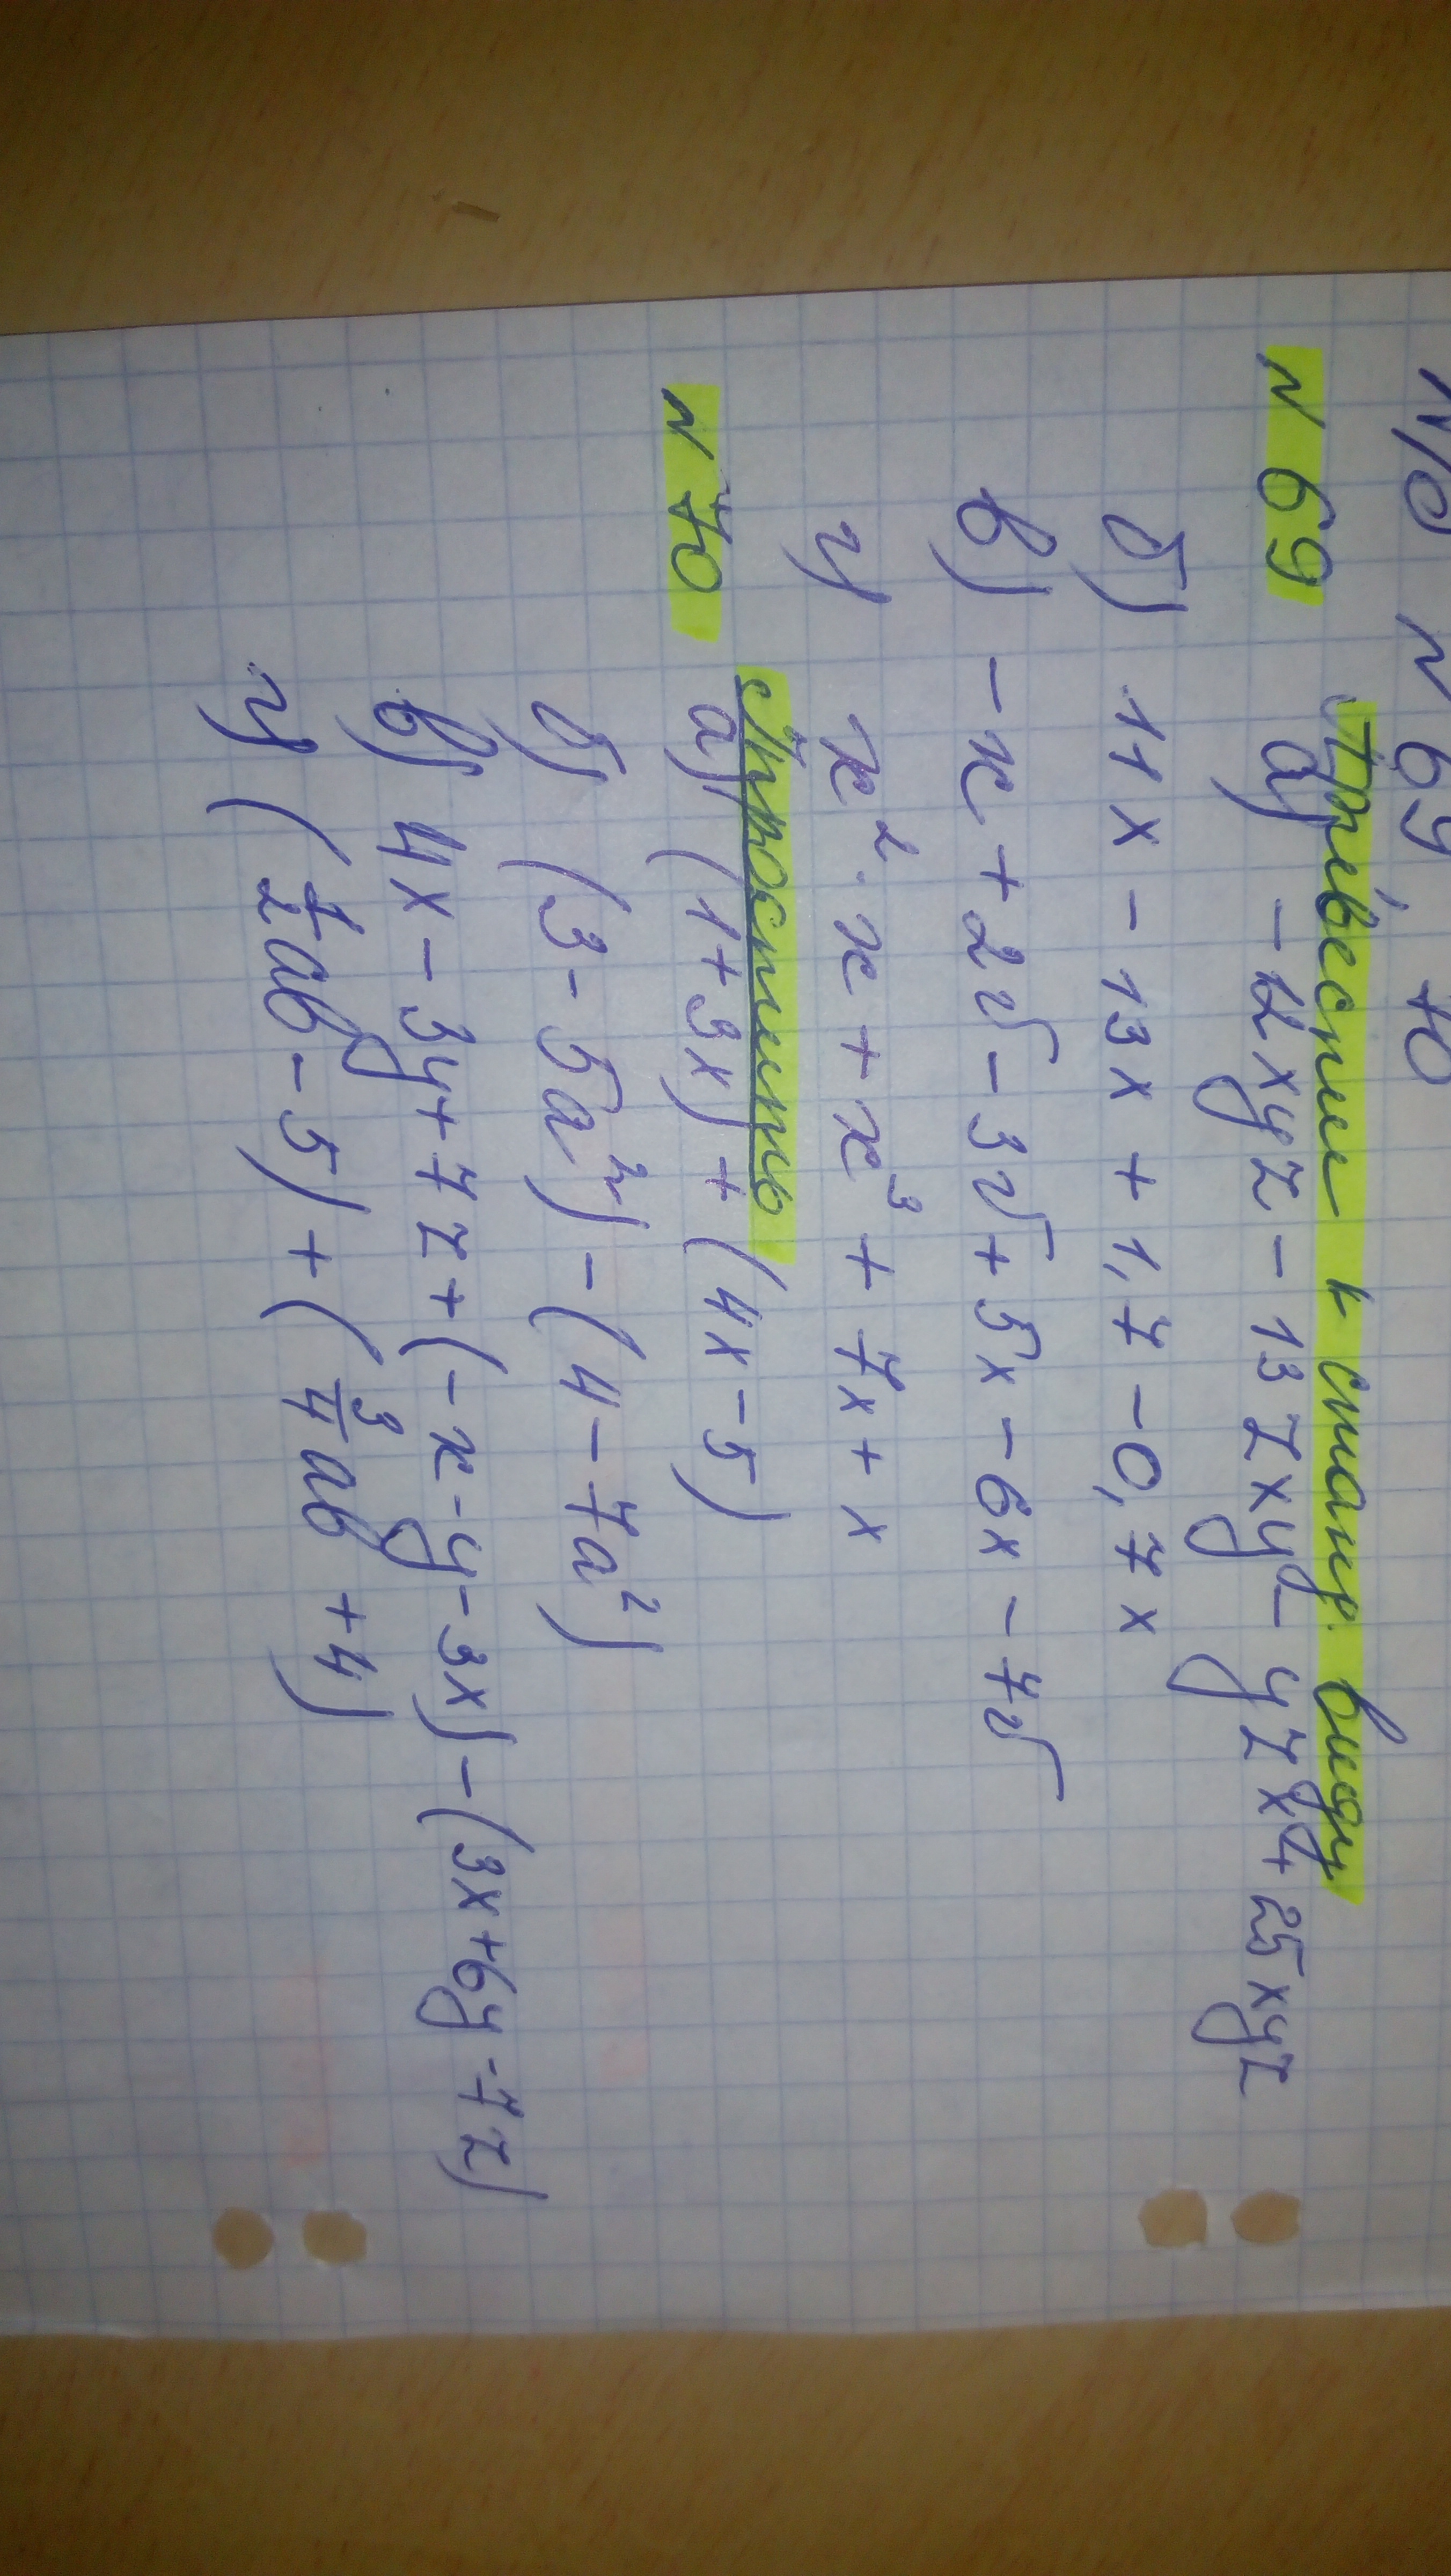 N 69, 70
N 69 Привести к станд. виду
а) -12xyz - 13zxy - yzx + 25xyz
б) 11x - 13x + 1,7 - 0,7x
в) -x + 2v - 3v + 5x - 6x - 7v
г) x²·x + x³ + 7x + x
N 70 Упростить
а) (1+3x) + (4x-5)
б) (3-5a²) - (4-7a²)
в) 4x - 3y + 7z + (-x-y-3x) - (3x+6y-7z)
г) (1/2 ab - 5) + (3/4 ab + 4)